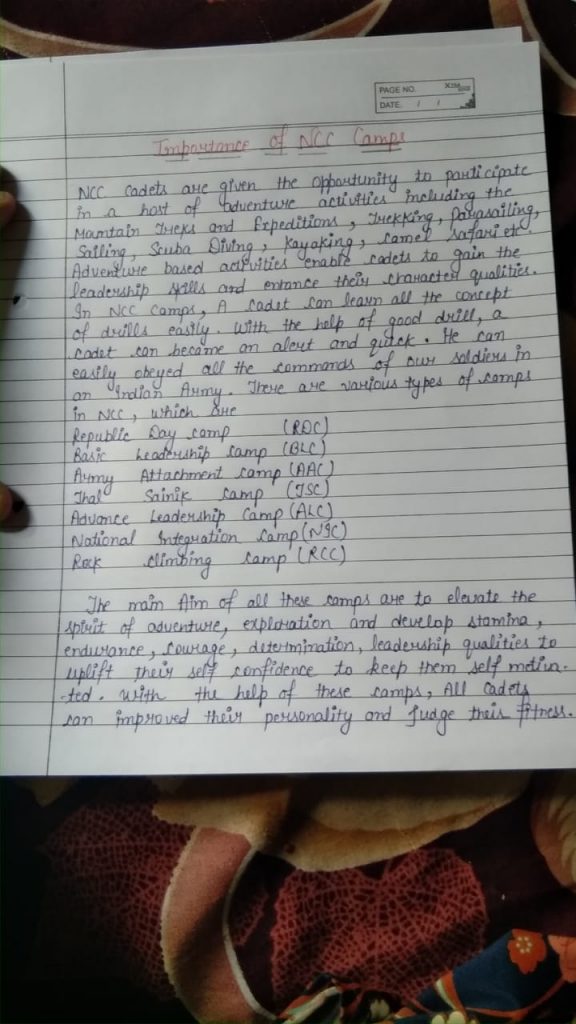 PAGE NO.
DATE / /
Importance of NCC Camps
NCC Cadets are given the opportunity to participate
in a host of adventure activities including the
Mountain Treks and Expeditions, Trekking, parasailing,
Sailing, Scuba Diving, Kayaking, camel safari etc.
Adventure based activities enable cadets to gain the
leadership skills and entance their character qualities.
In NCC camps, A cadet can learn all the concept
of drills easily. With the help of good drill, a
cadet can became an alert and quick. He can
easily obeyed all the commands of our soldiers in
an Indian Army. There are various types of camps
in NCC, which are
Republic Day camp (RDC)
Basic Leadership camp (BLC)
Army Attachment camp (AAC)
Thal Sainik camp (TSC)
Advance Leadership Camp (ALC)
National Integration Camp (NIC)
Rock climbing camp (RCC)
The main Aim of all these camps are to elevate the
spirit of adventure, exploration and develop stamina,
endurance, courage, determination, leadership qualities to
uplift their self confidence to keep them self motiva-
-ted. With the help of these camps, All Cadets
can improved their personality and judge their fitness.